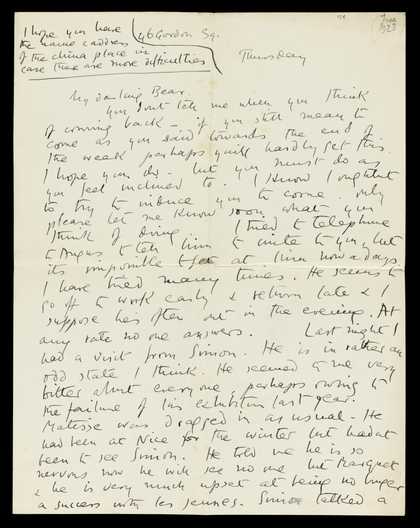 I hope you have
the name & address
of the china place in
case there are more difficulties
46 Gordon Sq.
Thursday
My darling Bear.
You don't tell me when you think
of coming back – if you still mean to
come as you said towards the end of
the week perhaps you'll hardly get this.
I hope you do – but you must do as
you feel inclined to. I know I oughtnt
to try to induce you to come. Only
please let me know soon what you
think of doing. I tried to telephone
to Angus to tell him to write to you, but
its impossible to get at him nowadays.
I have tried many times. He seems to
go off to work early & return late & I
suppose hes often out in the evening. At
any rate no one answers. Last night I
had a visit from Simon. He is in rather an
odd state I think. He seemed to me very
bitter about everyone perhaps owing to
the failure of his exhibition last year.
Matisse was dragged in as usual – He
had been at Nice for the winter but hadnt
been to see Simon. He told me he is so
nervous now he will see no one but Marquet
& he is very much upset at being no longer
a success with les jeunes. Simon talked a